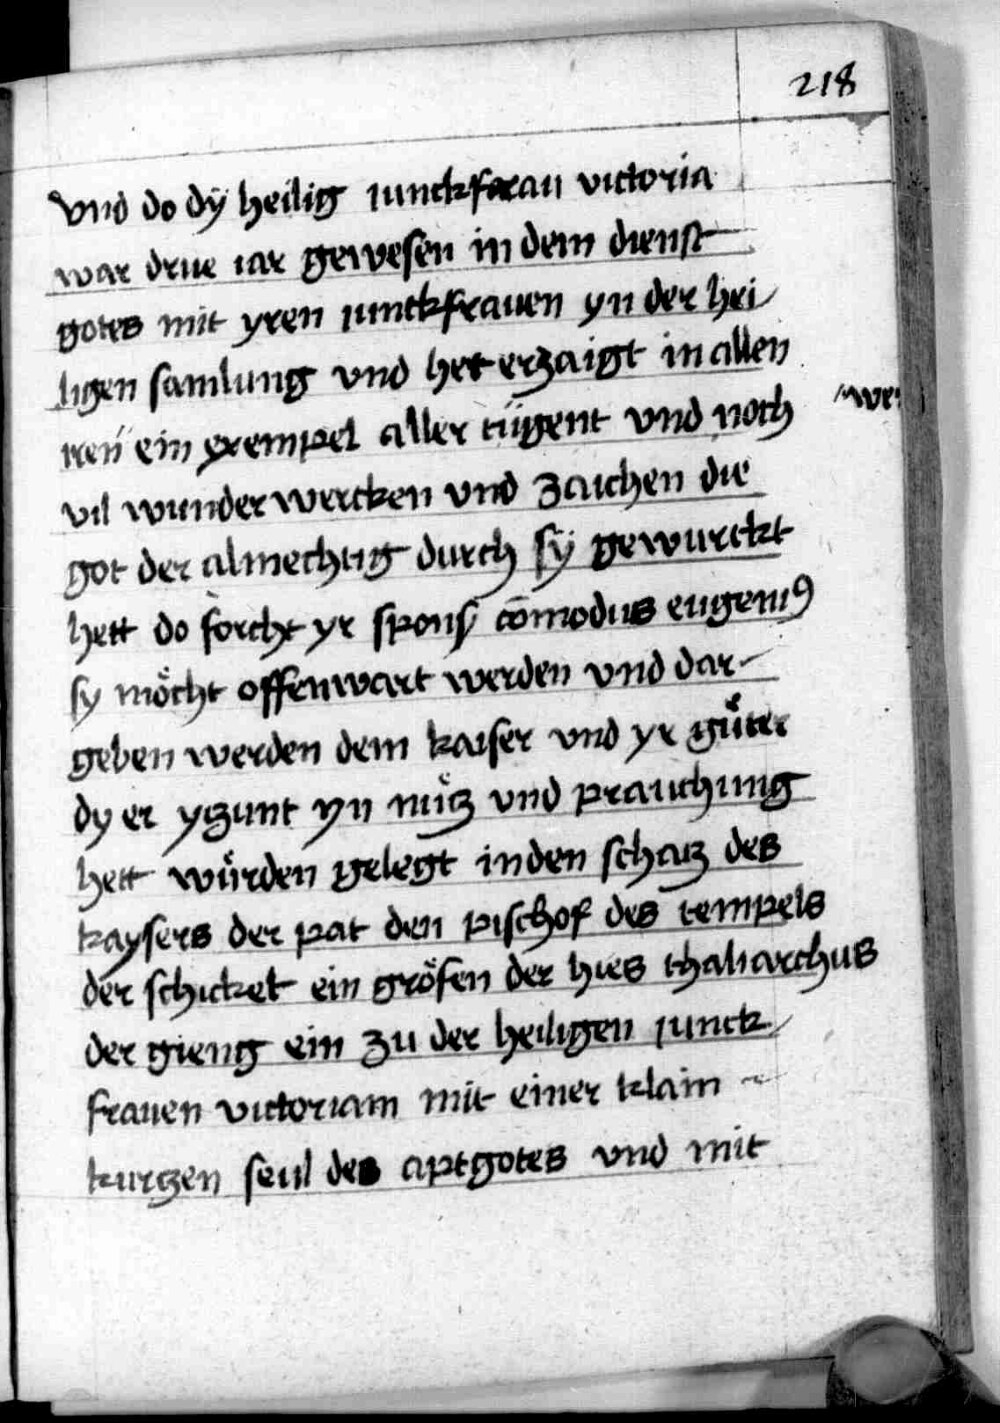 218
Vnd do dÿ heilig iunckfrau victoria
war drue iar gewesen in dem dienst
gotes mit yren iunckfrauen yn der hei
ligen samlung vnd het erzaigt in allen
ren ein exempel aller tügent vnd noch
wer
vil wunder wercken vnd zaichen die
got der almechtig durch sÿ gewurckt
hett do forcht yr spons cōmodus eugeniꝰ
sy möcht offenwart werden vnd dar
geben werden dem kaiser vnd yr güter
dy er yczunt yn nücz vnd prauchung
hett würden gelegt in den schacz des
kaysers der pat den pischof des tempels
der schicket ein gröfen der hies thaliarchus
der gieng ein zu der heiligen iunck
frauen victoriam mit einer klain
kurczen seul des aptgotes vnd mit